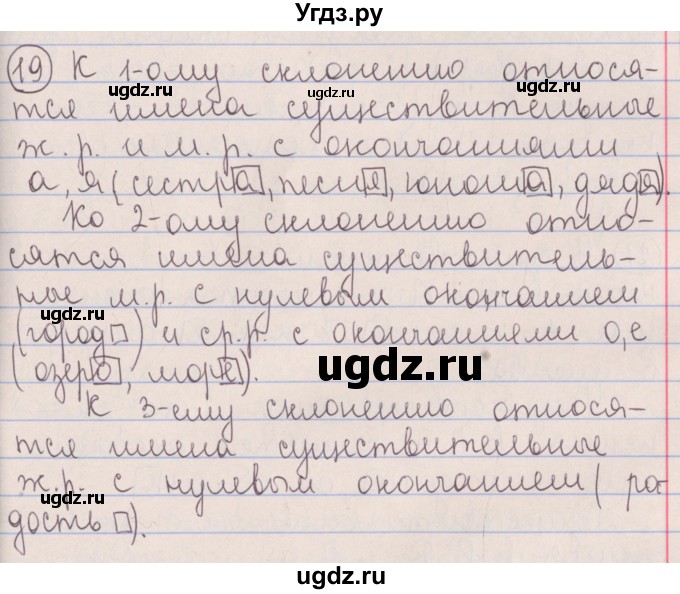 Угдз.ру
19 К 1-ому склонению относя-
ugdz.ru ugdz.ru
тся имена существительные
ж.р. и м.р. с окончаниями
а, я (сестра, песня, юноша, дядя).
Ко 2-ому склонению отно-
сятся имена существитель-
ные м.р. с нулевым окончанием
ugdz.ru
(город ) и ср.р. с окончаниями о, е
(озеро, море).
ugdz.ru
К 3-ему склонению относя-
тся имена существительные
ж.р. с нулевым окончанием (ра-
ugdz.ru ugdz.ru
дость ).
ugdz.ru